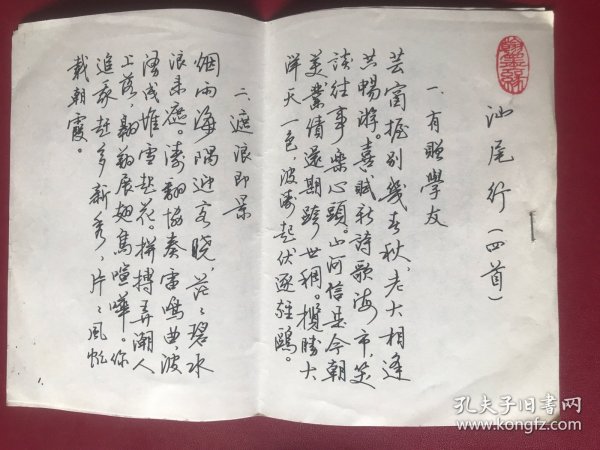 汕尾行(四首)
一、有贈學友
芸窗握别幾春秋,老大相逢
共暢游。喜賦新詩歌海市,笑
談往事樂心頭。山河信是今朝
美,業績還期跨世稠。攬勝大
洋天一色,波濤起伏逐輕鷗。
二、遮浪即景
烟雨海隅迎客曉,茫茫碧水
浪來遮。濤翻協奏雷鳴曲,波
湧成堆雪起花。拼搏弄潮人
上落,翱翔展翅鳥喧嘩。你
追我趕多新秀,片片風帆
載朝霞。
孔夫子旧书网
www.kongfz.com